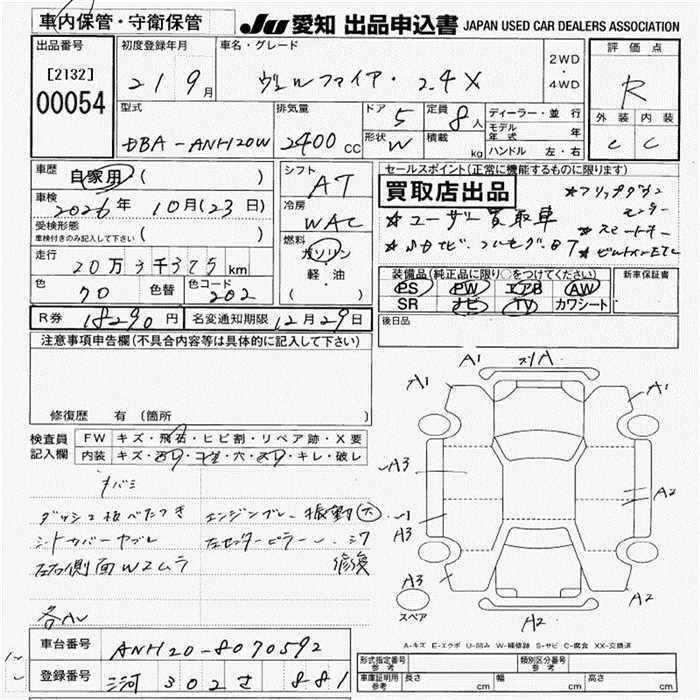 車内保管・守衛保管
JU 愛知 出品申込書 JAPAN USED CAR DEALERS ASSOCIATION
出品番号
[2132]
00054
初度登録年月
21 9月
車名・グレード
ヴェルファイア・2.4X
2WD
・
4WD
評価点
R
外装 内装
C C
型式
DBA-ANH20W
排気量
2400 CC
ドア 5
形状 W
定員 8人
積載 kg
ディーラー・並行
モデル年式 年
ハンドル 左・右
車歴 自家用 ( )
車検 2026年 10月(23日)
受検形態
車検付きのみ記入して下さい ( )
走行 20万3千375km
色 70 色替 色コード 202
シフト AT
冷房 WAC
燃料 ガソリン
軽・油
( )
セールスポイント(正常に機能するものに限ります)
買取店出品
★フリップダウン
モニター
★ユーザー買取車
★スマートキー
★ビルトインETC
装備品(純正品に限り○をつけてください)
PS PW エアB AW
SR ナビ TV カワシート
新車保証書
後日品
R券 18290円 名変通知期限 12月29日
注意事項申告欄(不具合内容等は具体的に記入して下さい)
修復歴 有 (箇所
検査員
記入欄
FW キズ・飛石・ヒビ割・リペア跡・X要
内装 キズ・ヨゴレ・コゲ・穴・スレ・キレ・破レ
ヤバミ
ダッシュ板べたつき エンジンブレ・振動(大)
シートカバーヤブレ 左センターピラー
左右側面W2ムラ 修復
各A
A1
A
A1
A1
A3
A2
A3
A3
A2
A2
スペア
A-キズ E-エクボ U-凹み W-補修跡 S-サビ C-腐食 XX-交換済
車台番号 ANH20-8070592
登録番号 三河 302 さ 881
形式指定番号
参考
類別区分番号
参考
車庫証明用
参考
長さ cm 幅 cm 高さ cm